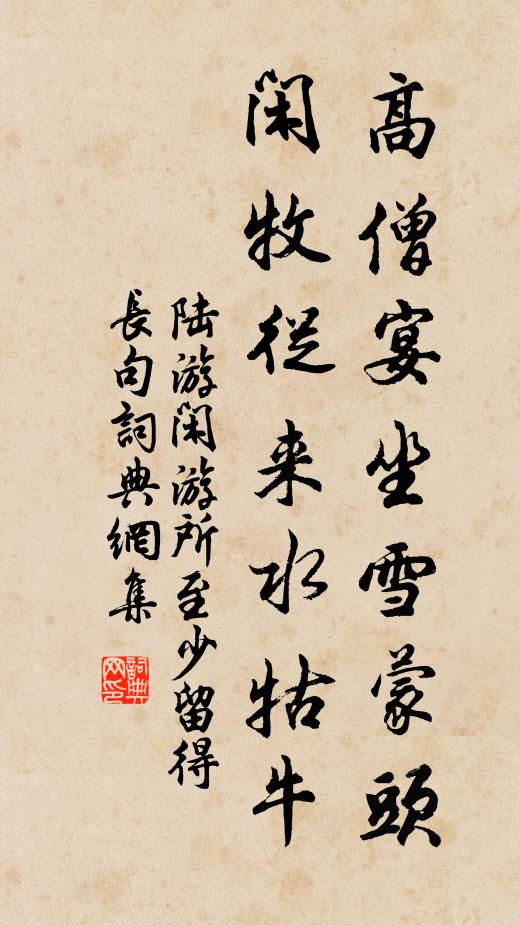 高僧宴坐雪蒙頭
閑牧從来水牯牛
陆游閑游所至少留得
長句詞典網集
詞典网印